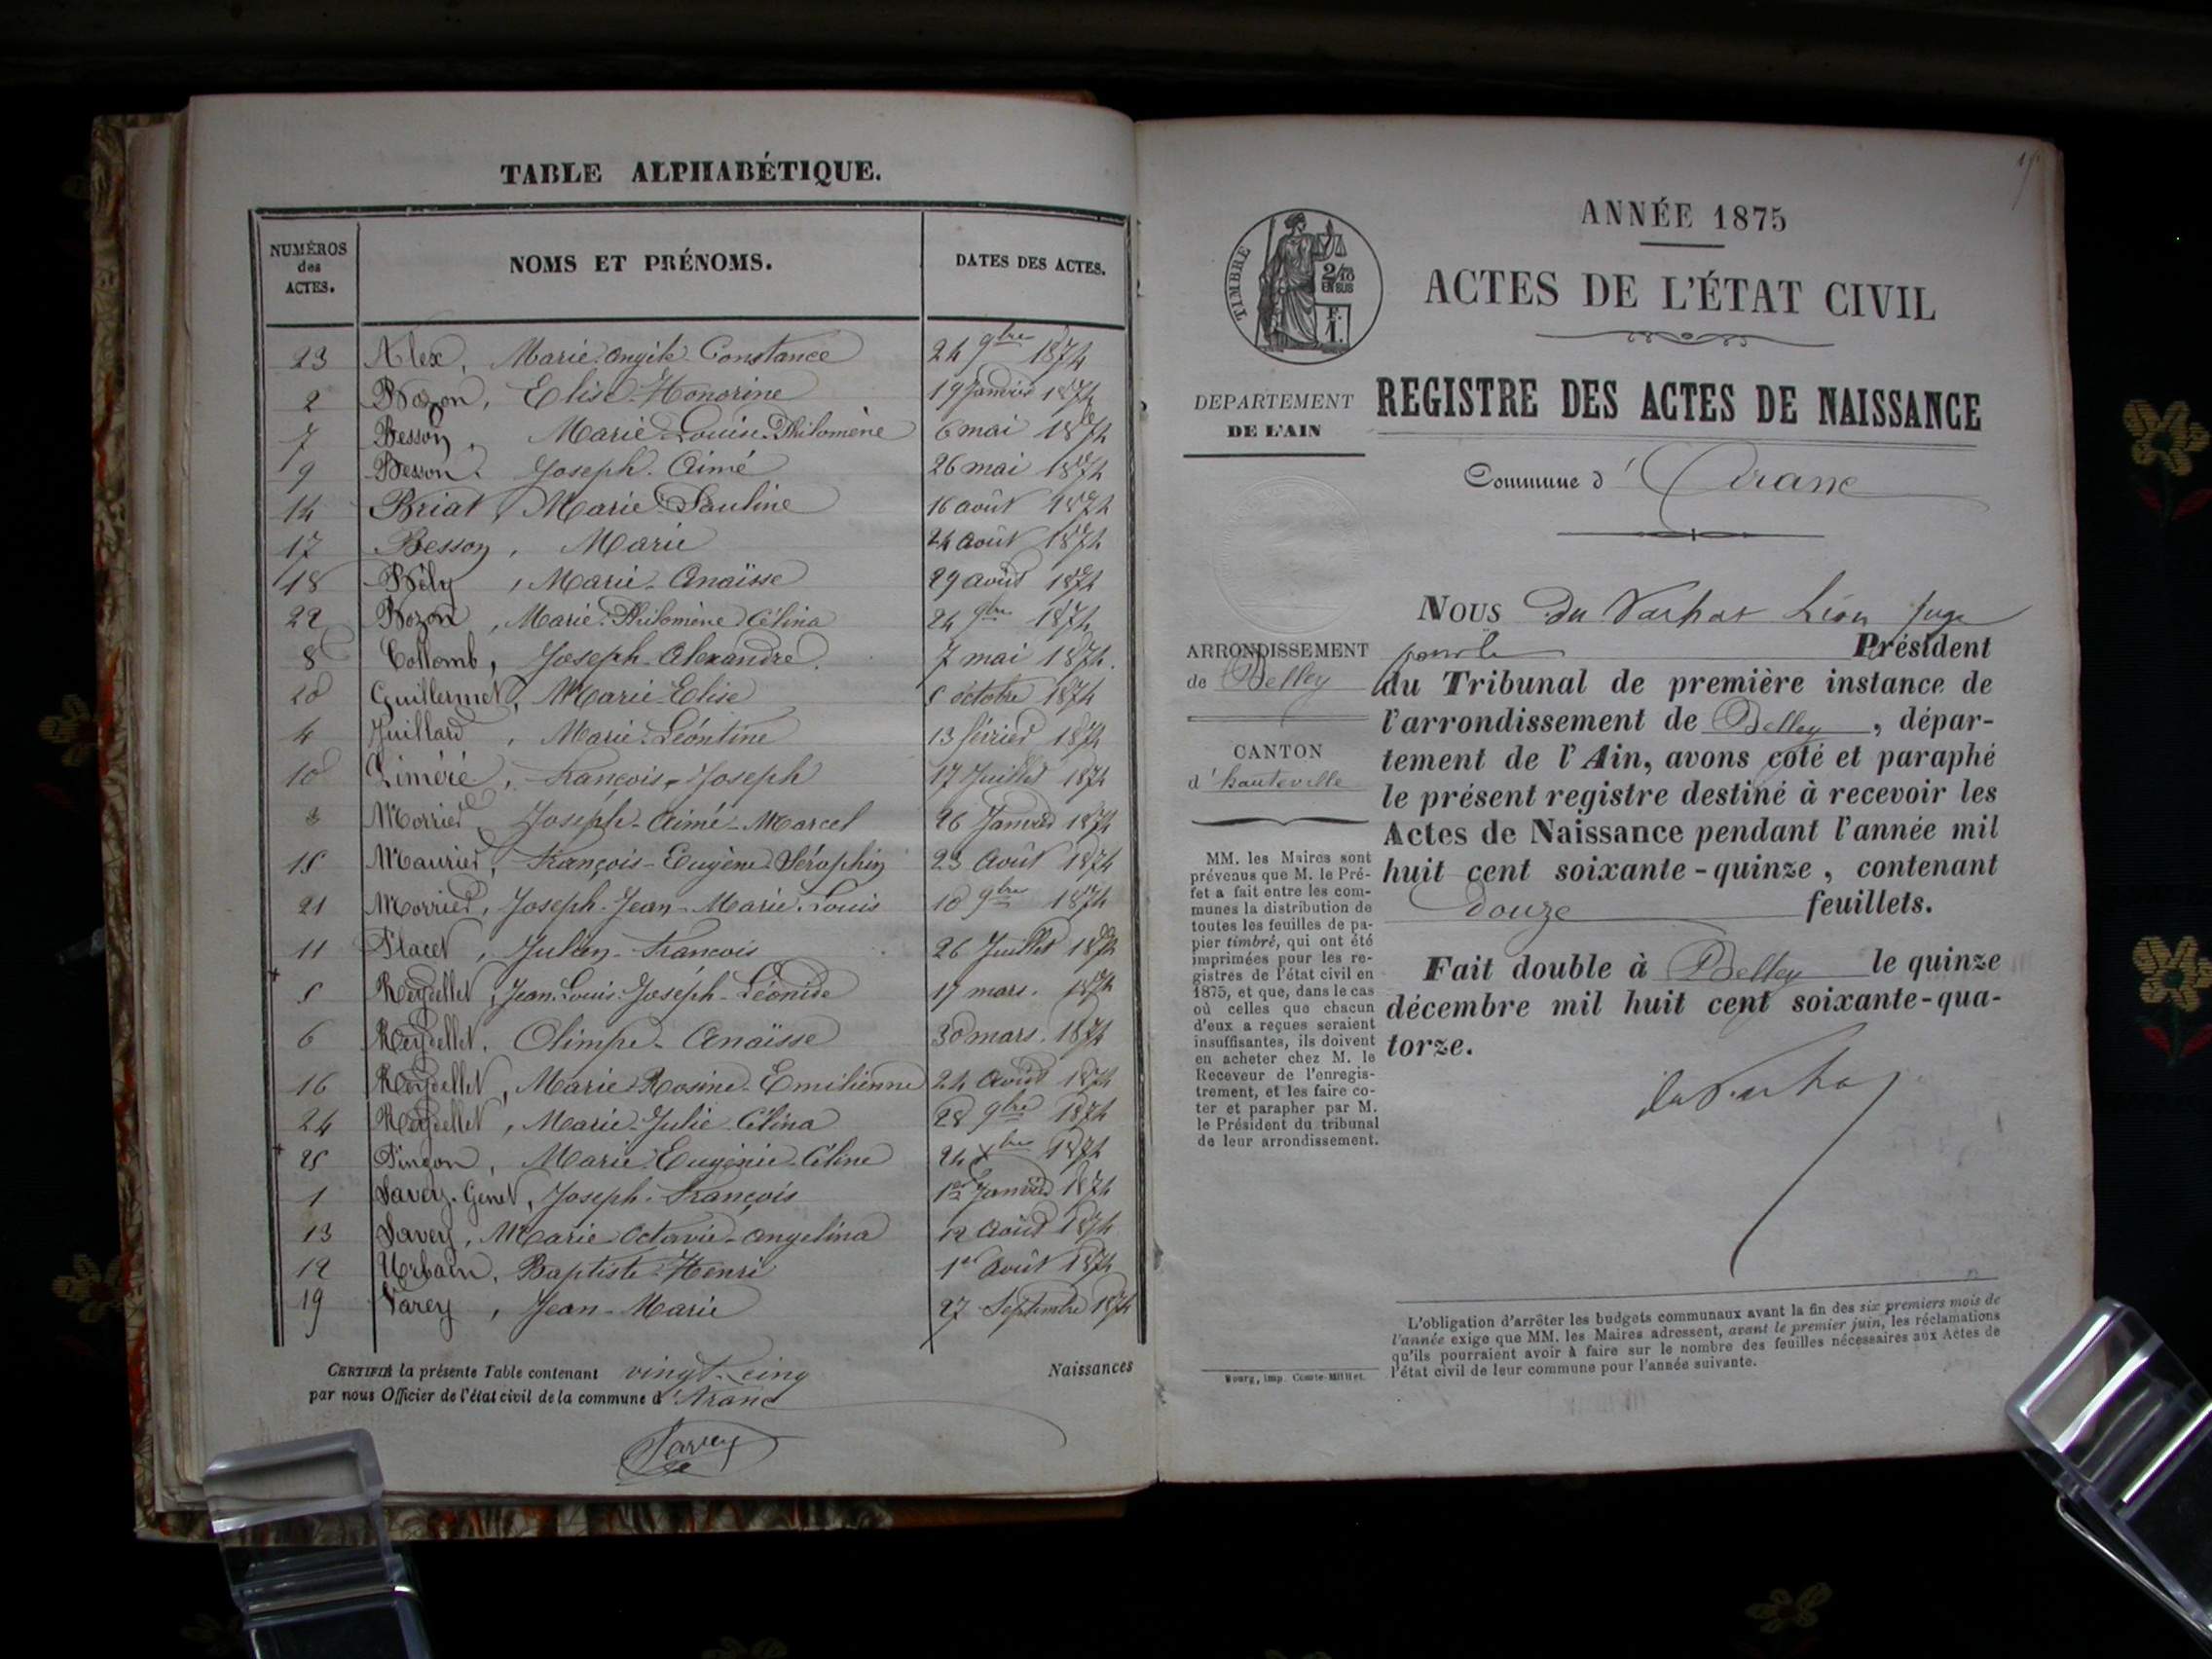 TABLE ALPHABÉTIQUE.
NUMÉROS des ACTES.
NOMS ET PRÉNOMS.
DATES DES ACTES.
23 Alex, Marie Constance 24 9bre 1874
2 Bozon, Elise Honorine 19 Janvier 1874
7 Besson, Marie Louise Philomène 6 mai 1874
9 Besson Joseph Aimé 26 mai 1874
14 Briat, Marie Pauline 16 août 1874
17 Besson, Marie 24 août 1874
18 Bély, Marie Anaïsse 29 août 1874
22 Bozon, Marie Philomène Célina 24 9bre 1874
8 Collomb, Joseph Alexandre. 7 mai 1874.
20 Guillermet, Marie Elise 5 octobre 1874
4 Juillard, Marie Léontine 13 février 1874
10 Liméré, francois Joseph 17 Juillet 1874
3 Morrier, Joseph Aimé Marcel 26 Janvier 1874
15 Maurier, François Eugène Séraphin 23 Août 1874
21 Morrier, Joseph Jean Marie Louis 10 9bre 1874
11 Placet, Julien francois 26 Juillet 1874
5 Reydellet, Jean Louis Joseph Léonide 17 mars. 1874
6 Reydellet. Olimpe Anaïsse 30 mars. 1874
16 Reydellet, Marie Rosine Emilienne 24 Août 1874
24 Reydellet, Marie Julie Célina 28 9bre 1874
25 Pingon, Marie Eugénie Céline 24 Xbre 1874
1 Savey-Genet, Joseph François 1er Janvier 1874
13 Savey, Marie Octavie Angelina 12 Août 1874
12 Urbain, Baptiste Henri 1er Août 1874
19 Varey, Jean-Marie 27 Septembre 1874
CERTIFIÉ la présente Table contenant vingt-cinq Naissances
par nous Officier de l'état civil de la commune d'Aranc
ANNÉE 1875
ACTES DE L'ÉTAT CIVIL
TIMBRE
2/10
EN SUS
F.
1.
DEPARTEMENT
DE L'AIN
REGISTRE DES ACTES DE NAISSANCE
Commune d'Aranc
Nous Du Léon juge
pour le Président
ARRONDISSEMENT
de Belley
du Tribunal de première instance de
l'arrondissement de Belley, dépar-
tement de l'Ain, avons coté et paraphé
le présent registre destiné à recevoir les
Actes de Naissance pendant l'année mil
huit cent soixante-quinze, contenant
douze feuillets.
CANTON
d'hauteville
MM. les Maires sont
prévenus que M. le Pré-
fet a fait entre les com-
munes la distribution de
toutes les feuilles de pa-
pier timbré, qui ont été
imprimées pour les re-
gistres de l'état civil en
1875, et que, dans le cas
où celles que chacun
d'eux a reçues seraient
insuffisantes, ils doivent
en acheter chez M. le
Receveur de l'enregis-
trement, et les faire co-
ter et parapher par M.
le Président du tribunal
de leur arrondissement.
Fait double à Belley le quinze
décembre mil huit cent soixante-qua-
torze.
L'obligation d'arrêter les budgets communaux avant la fin des six premiers mois de
l'année exige que MM. les Maires adressent, avant le premier juin, les réclamations
qu'ils pourraient avoir à faire sur le nombre des feuilles nécessaires aux Actes de
l'état civil de leur commune pour l'année suivante.
Bourg, imp. Comte-Milliet.